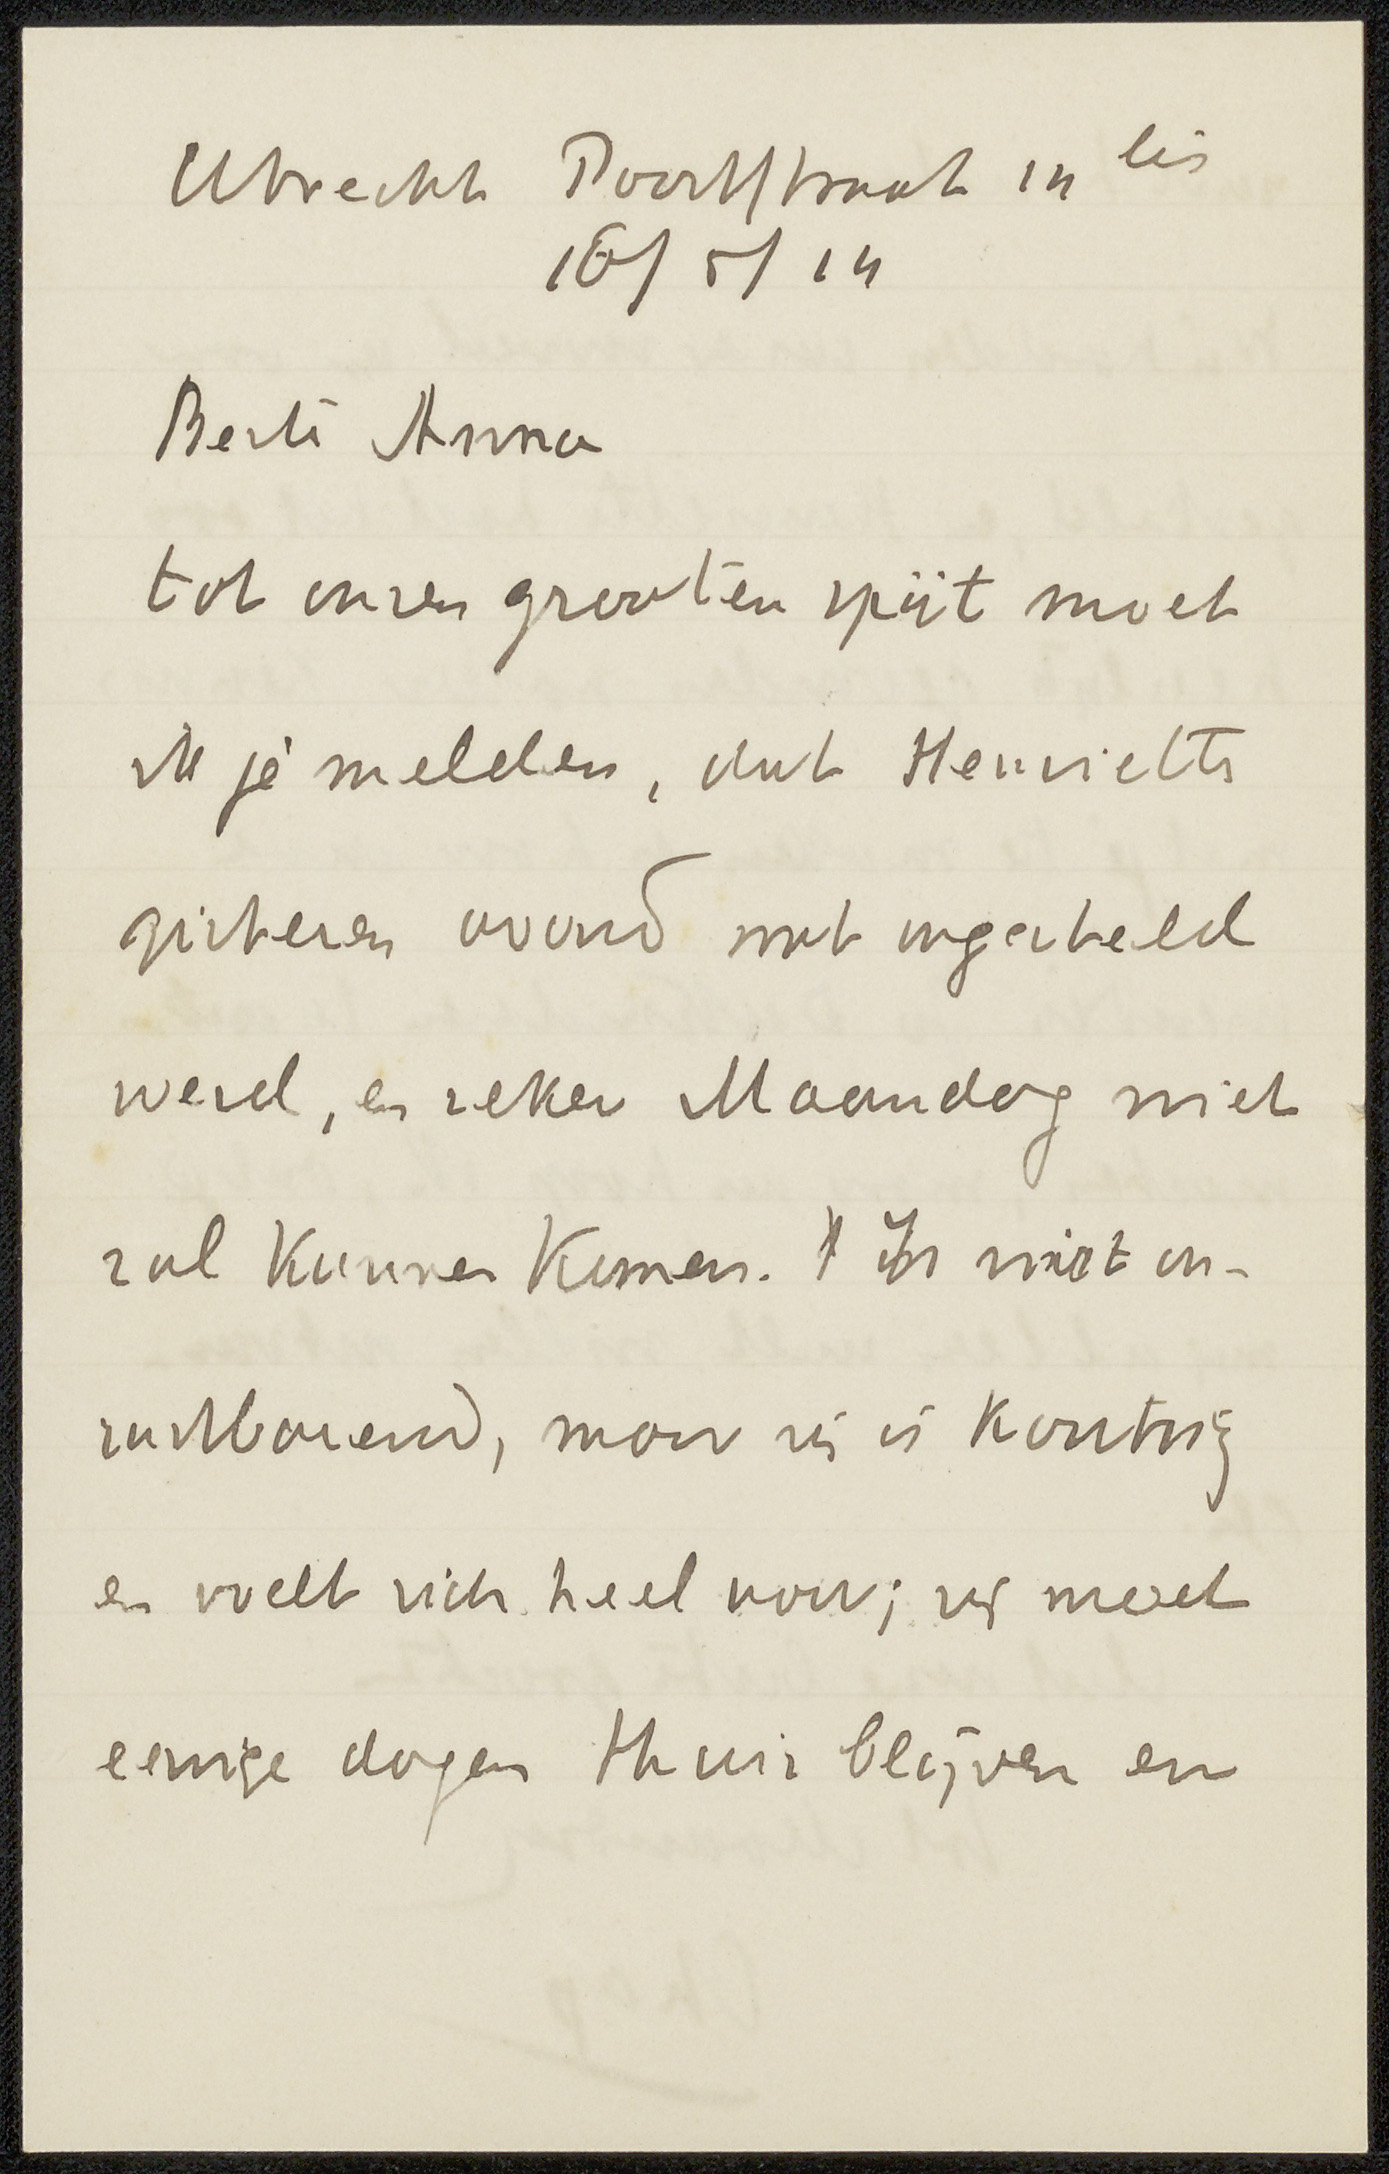 Utrecht Poortstraat 14 bis
16/5/14
Beste Anna
tot onzen grooten spijt moet
ik je melden, dat Henriette
gisteren avond wat ongesteld
werd, en zeker Maandag niet
zal kunnen komen. 't Is niet on-
rustbarend, maar zij is koortsig
en voelt zich heel naar; zij moet
eenige dagen thuis blijven en